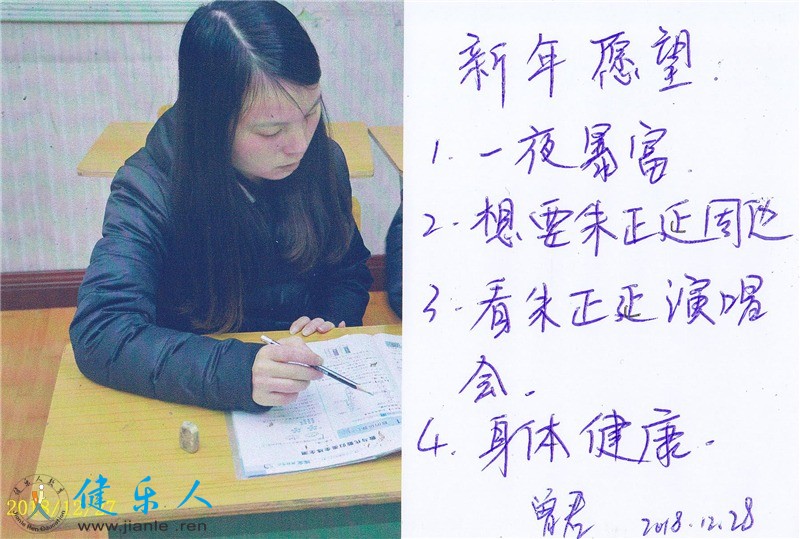 新年愿望
1. 一夜暴富
2. 想要朱正廷周边
3. 看朱正廷演唱
会.
4. 身体健康.
曾君 2018.12.28
健乐人
www.jianle.ren